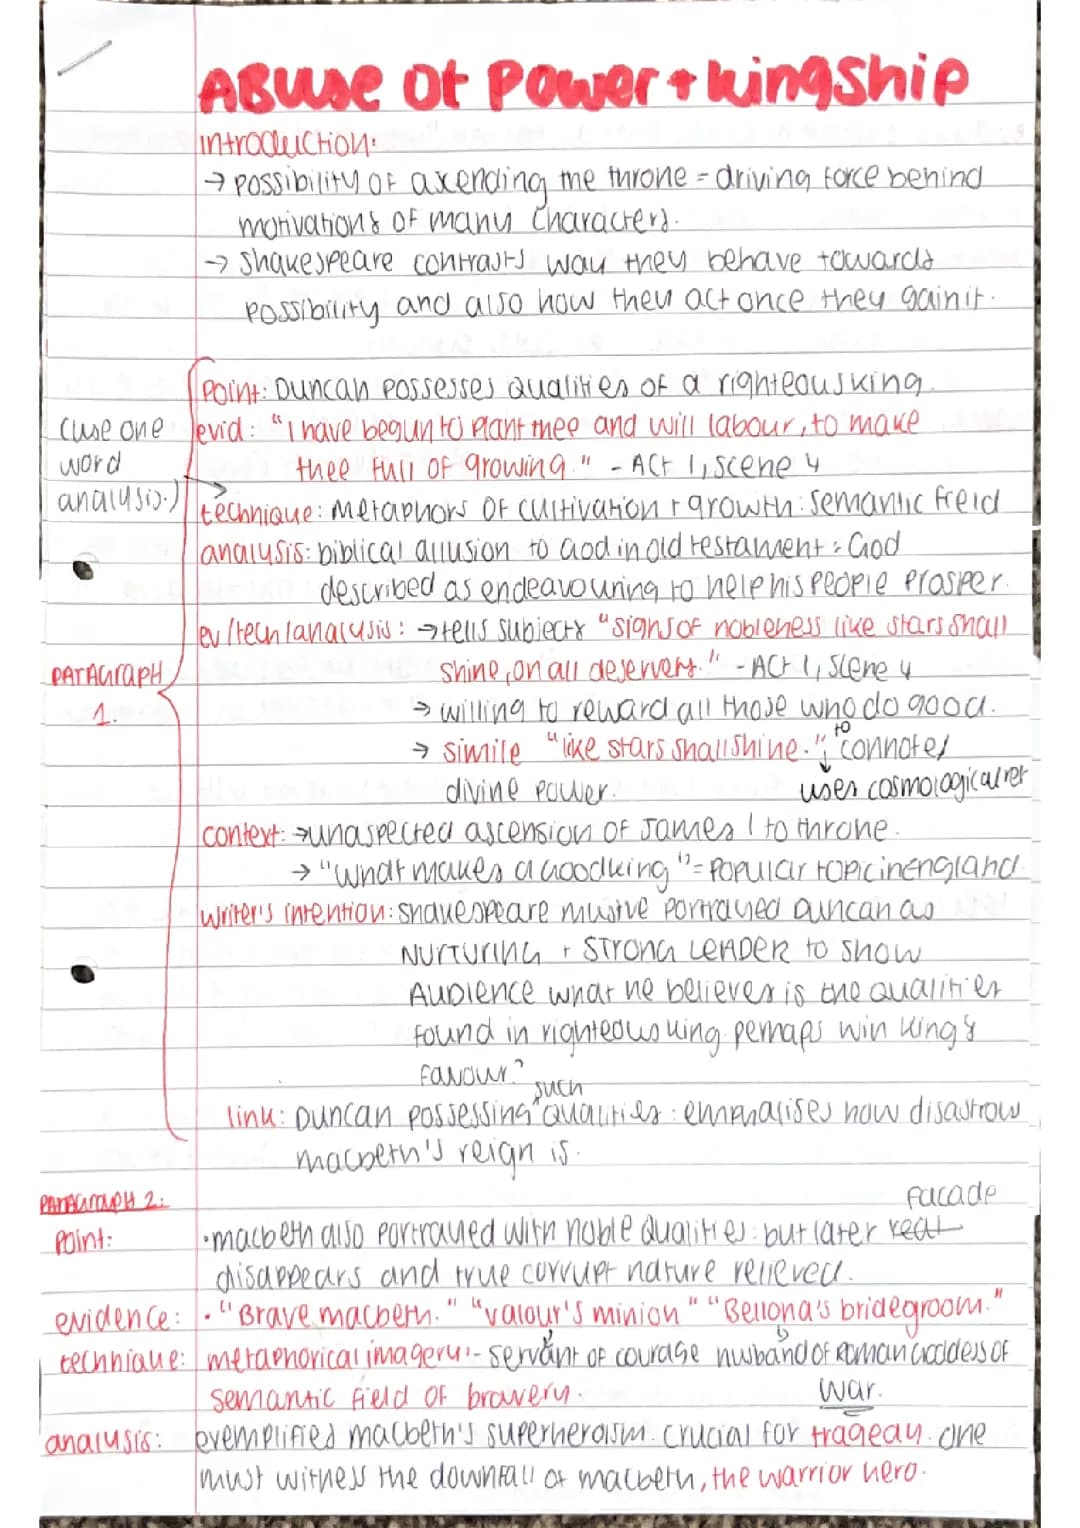 ABuse of Power + kingship
introduction:
→ possibility of axending the throne = driving force behind
motivations of many characters.
→ Shakespeare contrasts way they behave towards
possibility and also how they act once they gain it.
Point: Duncan possesses qualities of a righteous king.
(use one word analysis.)
evid: "I have begun to plant thee and will labour, to make
thee full of growing." - Act 1, scene 4
technique: Metaphors of cultivation + growth: semantic field
analysis: biblical allusion to God in old testament: God
described as endeavouring to help his people prosper.
ev/tech/analysis: → tells subjects "signs of nobleness like stars shall
shine, on all deservers." - Act 1, Scene 4
PARAGRAPH
1.
→ willing to reward all those who do good.
→ simile "like stars shall shine." to connotes
divine power. uses cosmological ref
context: → unaspected ascension of James I to throne.
→ "What makes a Good king" = Popular topic in England.
Writer's intention: Shakespeare mustve portrayed Duncan as
NURTURING + STRONG LEADER to show
AUDIENCE what he believes is the qualities
found in righteous king. perhaps win king's
favour?
link: Duncan possessing such qualities: emphasises how disastrous
macbeth's reign is.
PARAGRAPH 2:
facade
Point: • macbeth also portrayed with noble qualities: but later real
disappears and true corrupt nature relieved.
evidence: • "Brave macbeth." "valour's minion" "Bellona's bridegroom."
technique: metaphorical imagery:- servant of courage husband of Roman Goddess of
semantic field of bravery. war.
analysis: exemplifies macbeth's superheroism. crucial for tragedy. one
must witness the downfall of macbeth, the warrior hero.